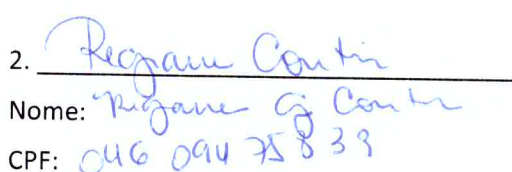 2. Regiane Contin
Nome: Regiane Cj Contin
CPF: 046 094 758 39